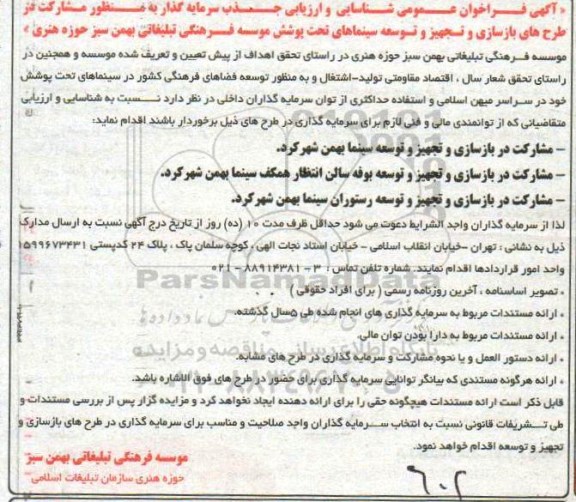 « آگهی فراخوان عمومی شناسایی و ارزیابی جذب سرمایه گذار به منظور مشارکت در
طرح های بازسازی و تجهیز و توسعه سینماهای تحت پوشش موسسه فرهنگی تبلیغاتی بهمن سبز حوزه هنری »
موسسه فرهنگی تبلیغاتی بهمن سبز حوزه هنری در راستای تحقق اهداف از پیش تعیین و تعریف شده موسسه و همچنین در
راستای تحقق شعار سال ، اقتصاد مقاومتی تولید-اشتغال و به منظور توسعه فضاهای فرهنگی کشور در سینماهای تحت پوشش
خود در سراسر میهن اسلامی و استفاده حداکثری از توان سرمایه گذاران داخلی در نظر دارد نسبت به شناسایی و ارزیابی
متقاضیانی که از توانمندی مالی و فنی لازم برای سرمایه گذاری در طرح های ذیل برخوردار باشند اقدام نماید:
– مشارکت در بازسازی و تجهیز و توسعه سینما بهمن شهرکرد.
– مشارکت در بازسازی و تجهیز و توسعه بوفه سالن انتظار همکف سینما بهمن شهرکرد.
– مشارکت در بازسازی و تجهیز و توسعه رستوران سینما بهمن شهرکرد.
لذا از سرمایه گذاران واجد الشرایط دعوت می شود حداقل ظرف مدت ۱۰ (ده) روز از تاریخ درج آگهی نسبت به ارسال مدارک
ذیل به نشانی : تهران –خیابان انقلاب اسلامی – خیابان استاد نجات الهی ، کوچه سلمان پاک ، پلاک ۲۴ کدپستی ۱۵۹۹۶۷۳۴۳۱
واحد امور قراردادها اقدام نمایند. شماره تلفن تماس : ۳ – ۸۸۹۱۴۳۸۱ – ۰۲۱
• تصویر اساسنامه ، آخرین روزنامه رسمی ( برای افراد حقوقی )
• ارائه مستندات مربوط به سرمایه گذاری های انجام شده طی ۵سال گذشته.
• ارائه مستندات مربوط به دارا بودن توان مالی.
• ارائه دستور العمل و یا نحوه مشارکت و سرمایه گذاری در طرح های مشابه.
• ارائه هرگونه مستندی که بیانگر توانایی سرمایه گذاری برای حضور در طرح های فوق الاشاره باشد.
قابل ذکر است ارائه مستندات هیچگونه حقی را برای ارائه دهنده ایجاد نخواهد کرد و مزایده گزار پس از بررسی مستندات و
طی تشریفات قانونی نسبت به انتخاب سرمایه گذاران واجد صلاحیت و مناسب برای سرمایه گذاری در طرح های بازسازی و
تجهیز و توسعه اقدام خواهد نمود.
موسسه فرهنگی تبلیغاتی بهمن سبز
حوزه هنری سازمان تبلیغات اسلامی